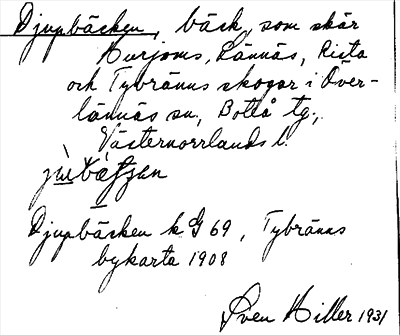 Djupbäcken, bäck, som skär
Hurjoms, Lännäs, Rista
och Tybränns skogar i Över-
lännäs sn, Boteå tg.,
Västernorrlands l.
Djupbäcken k G 69, Tybränns
bykarta 1908
Sven Hiller 1931